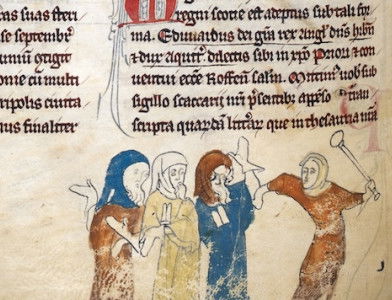 as suas steri
se septembr̄
onie cū multi
ripolis ciuita
nus finaliter
regni scotie est adeptus sub tali for
ma. Edwardus dei gr̄a rex angl̄ dn̄s hib̄n
& dux aquit̄ dilectis sibi in xp̄o Priori & con
uentui ecc̄e Roffen̄ sal̄m. Mittim̄ uob̄ sub
sigillo scaccarij nr̄i p̄sentib̄ appēso Tran
scripta quardā litt̄ar̄ que in thesauria nr̄a